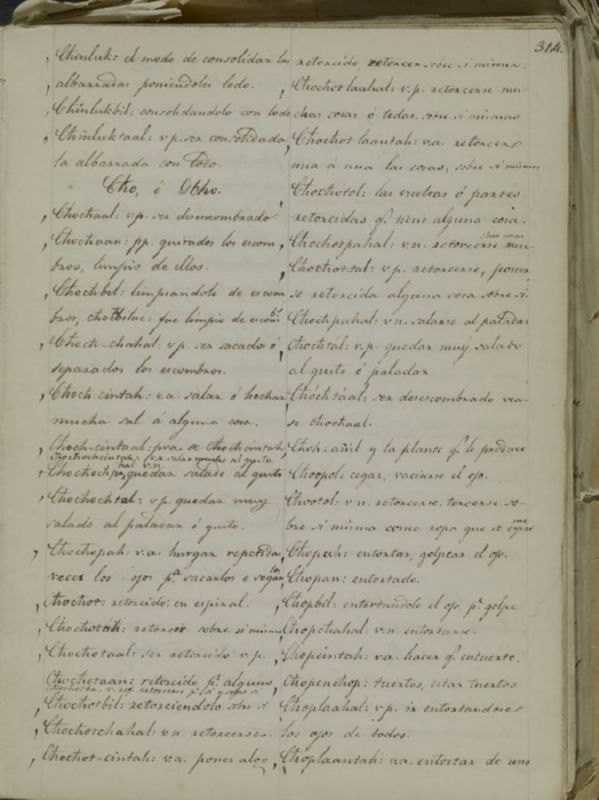 314.
Chinluk: el modo de consolidar las
albarradas poniendoles lodo.
Chinlukbil: consolidandolo con lodo
Chinluktaal: v.p. ser consolidada
la albarrada con lodo.
Cho, ó Dcho.
Choctaal: v.p. ser desescombrado
Choctaan: pp. quitados los escom
bros, limpio de ellos.
Chochbil: limpiandolo de escom
bros, fue limpio de escombs
Choch-chahal: v.p. ser sacados ó
separados los escombros.
Choch-cintah: v.a. salar ó hechar
mucha sal á alguna cosa.
Choch-cintaal: p.va. de Choch cintah
v.a. salar mucho al gusto.
quedar salado al gusto
Chochochtal: v.p. quedar muy
salado al paladar ó gusto.
Chochopah: v.a. hurgar repetidas
veces los ojos pa sacarlos o
Chochot: retorcido: en espiral.
Chochotah: retorcer sobre si mismo
Chochotaal: ser retorcido v.p.
Chochotaan: retorcido pr alguno
Chochotbil: retorciendolo sobre si
Chochotchahal: v.n. retorcerse.
Chochot-cintah: v.a. poner algo
retorcido, retorcer sobre si misma.
Chochotlaahal: v.p. retorcerse mu
chas cosas ó todas, sobre si mismas
Chochot laantah: v.a. retorcer
una á una las cosas, sobre si mismas
Chochotol: las vueltas ó partes
retorcidas q. tiene alguna cosa.
Chochotpahal: v.n. retorcerse mu-
Chochottal: v.p. retorcerse, poner
se retorcida alguna cosa sobre si.
Chochpahal v.n. salarse al paladar
Chochtal: v.p. quedar muy salado
al gusto ó paladar
Chochtáal: ser desescombrado vea-
se choctaal.
Choh: añil y la planta q. lo produce
Choopol: cegar, vaciarse el ojo.
Chootol: v.n. retorcerse. torcerse so-
bre si misma como ropa que se
Chopah: entortar, golpear el ojo.
Chopan: entortado.
Chopbil: entortandole el ojo pr golpe
Chopchahal: v.n. entortarse.
Chopcintah: v.a. hacer q. entuerte.
Chopenchop: tuertos, estar tuertos
Choplaahal: v.p. ir entortandose
los ojos de todos.
Choplaantah: v.a. entortar de uno